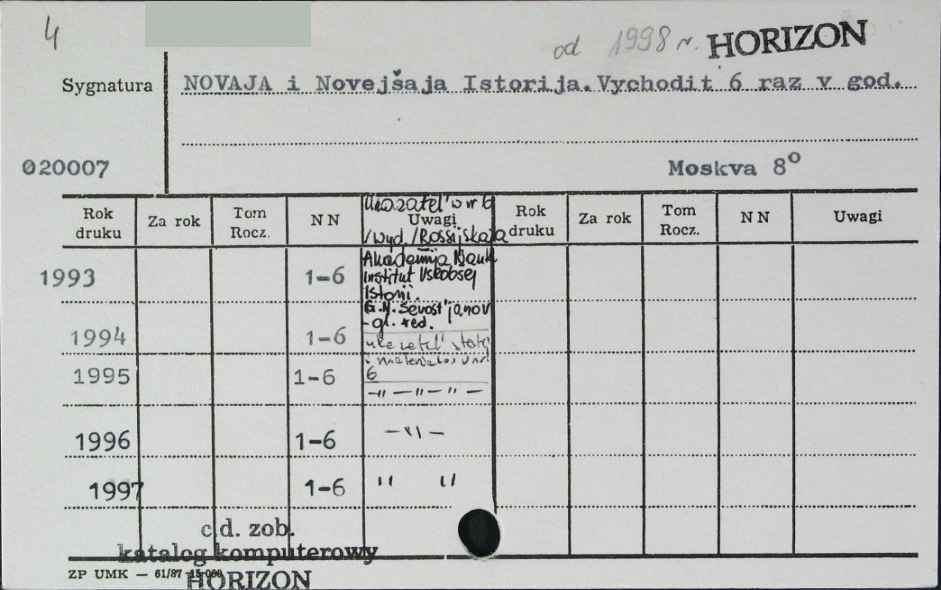 4
od 1998 r. HORIZON
Sygnatura NOVAJA i Novejšaja Istorija. Vychodit 6 raz v god.
020007 Moskva 8°
Rok druku Za rok Tom Rocz. NN Uwagi Rok druku Za rok Tom Rocz. NN Uwagi
Ukazatel' w nr 6
/wyd./Rossijskaja
1993 1-6 Akademija Nauk
Institut Vseobščej
Istorii.
G.N. Sevost'janov
- gl. red.
1994 1-6
i materialov v nr
1995 1-6 6
-"-"-"-
1996 1-6 -"-
1997 1-6 " "
c.d. zob.
katalog komputerowy
HORIZON
ZP UMK — 61/87 15 000